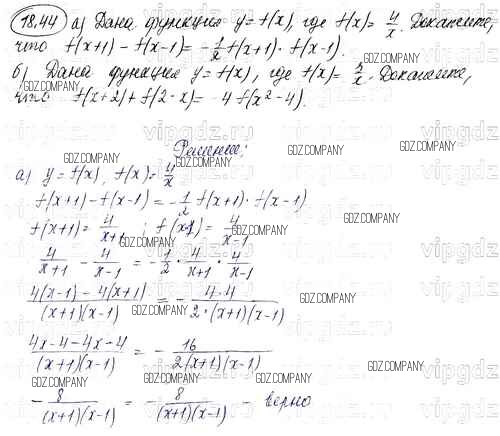 18.44 а) Дана функция y = f(x), где f(x) = 4/x. Докажите,
что f(x+1) - f(x-1) = -1/2 f(x+1) · f(x-1).
б) Дана функция y = f(x), где f(x) = /x. Докажите,
что f(x+2) + f(2-x) = -4 f(x²-4).
Решение:
а) y = f(x), f(x) = 4/x
f(x+1) - f(x-1) = -1/2 f(x+1) · f(x-1)
f(x+1) = 4/(x+1) ; f(x-1) = 4/(x-1)
4/(x+1) - 4/(x-1) = -1/2 · 4/(x+1) · 4/(x-1)
(4(x-1) - 4(x+1))/((x+1)(x-1)) = - (4·4)/(2·(x+1)(x-1))
(4x-4-4x-4)/((x+1)(x-1)) = - 16/(2(x+1)(x-1))
- 8/((x+1)(x-1)) = - 8/((x+1)(x-1)) - верно
GDZ.COMPANY
vipgdz